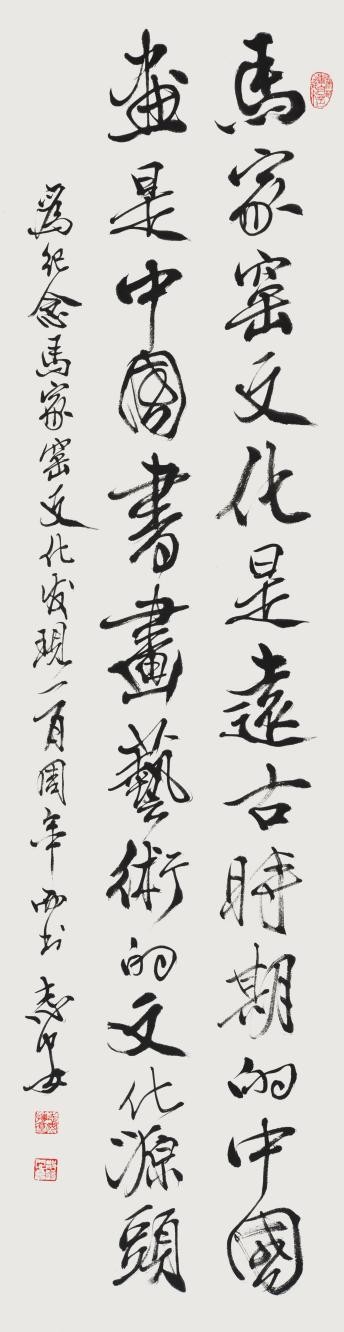 馬家窑文化是遠古時期的中國
畫是中國書畫藝術的文化源頭
爲紀念馬家窑文化发現一百周年而书